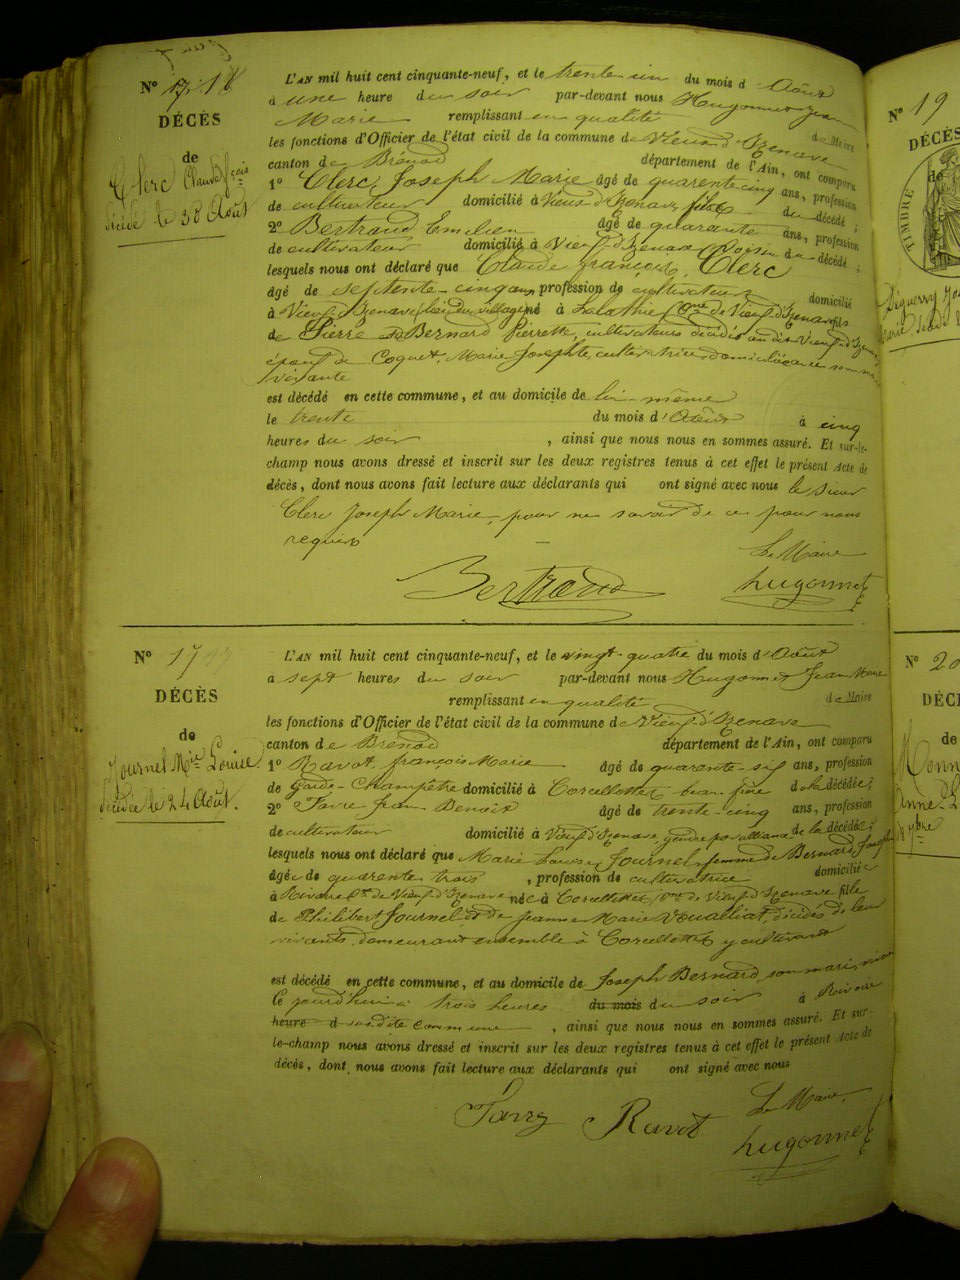 N° 18
DÉCÈS
de
Clerc Claude fçois
décédé le 30 Août
L'AN mil huit cent cinquante-neuf, et le trente-un du mois d'Août
à une heure du soir par-devant nous Hugonnet Jean
Marie remplissant en qualité de Maire
les fonctions d'Officier de l'état civil de la commune de Vieud d'Izenave
canton de Brénod département de l'Ain, ont comparu
1° Clerc, Joseph Marie âgé de quarente-cinq ans, profession
de cultivateur domicilié à Vieus d'Izenave, fils du décédé ;
2° Bertrand Emilien âgé de quarante ans, profession
de cultivateur domicilié à Vieus-d'Izenave Voisin du décédé ;
lesquels nous ont déclaré que Claude françois, Clerc
âgé de septente-cinq ans, profession de cultivateur domicilié
à Vieus d'Izenave (lieu du village) né à Lalathie (Cne de Vieus d'Izenave fils
de Pierre et de Bernard Pierrette, cultivateurs décédés au dit Vieus-d'Izenave
époux de Coquet, Marie Josephte, cultivatrice domiciliée avec son mari
vivante
est décédé en cette commune, et au domicile de lui-même
le trente du mois d'Août à cinq
heures du soir , ainsi que nous nous en sommes assuré. Et sur-le-
champ nous avons dressé et inscrit sur les deux registres tenus à cet effet le présent Acte de
décès, dont nous avons fait lecture aux déclarants qui ont signé avec nous le sieur
Clerc Joseph Marie, pour ne savoir de ce pour nous
requis
Le Maire
Bertrand hugonnet
N° 17
DÉCÈS
de
Journel Mie Louise
décédée le 24 Août.
L'AN mil huit cent cinquante-neuf, et le vingt-quatre du mois d'Août
à sept heures du soir par-devant nous Hugonnet Jean Marie
remplissant en qualité de Maire
les fonctions d'Officier de l'état civil de la commune de Vieus-d'Izenave
canton de Brénod département de l'Ain, ont comparu
1° Ravot, françois Marie âgé de quarente-six ans, profession
de Garde-Champêtre domicilié à Corcellettes beau frère de la décédée ;
2° Favre Jean-Benoit âgé de trente-cinq ans, profession
de cultivateur domicilié à Vieus d'Izenave, gendre par alliance de la décédée ;
lesquels nous ont déclaré que Marie Louise, Journel, femme de Bernard Joseph
âgée de quarente trois , profession de cultivatrice domiciliée
à Rivoire Cne de Vieus d'Izenave née à Corcellettes Cne de Vieus d'Izenave fille
de Philibert Journel et de Jeanne Marie décédés de leur
vivants demeurant ensemble à Corcellettes y cultivant
est décédé en cette commune, et au domicile de Joseph Bernard son mari
Ce jourd'hui à trois heures du mois du soir à Rivoire
heure d susdite commune , ainsi que nous nous en sommes assuré. Et sur-
le-champ nous avons dressé et inscrit sur les deux registres tenus à cet effet le présent Acte de
décès, dont nous avons fait lecture aux déclarants qui ont signé avec nous
Le Maire
Ravot hugonnet
N° 19
DÉCÈS
de
TIMBRE
N° 20
de